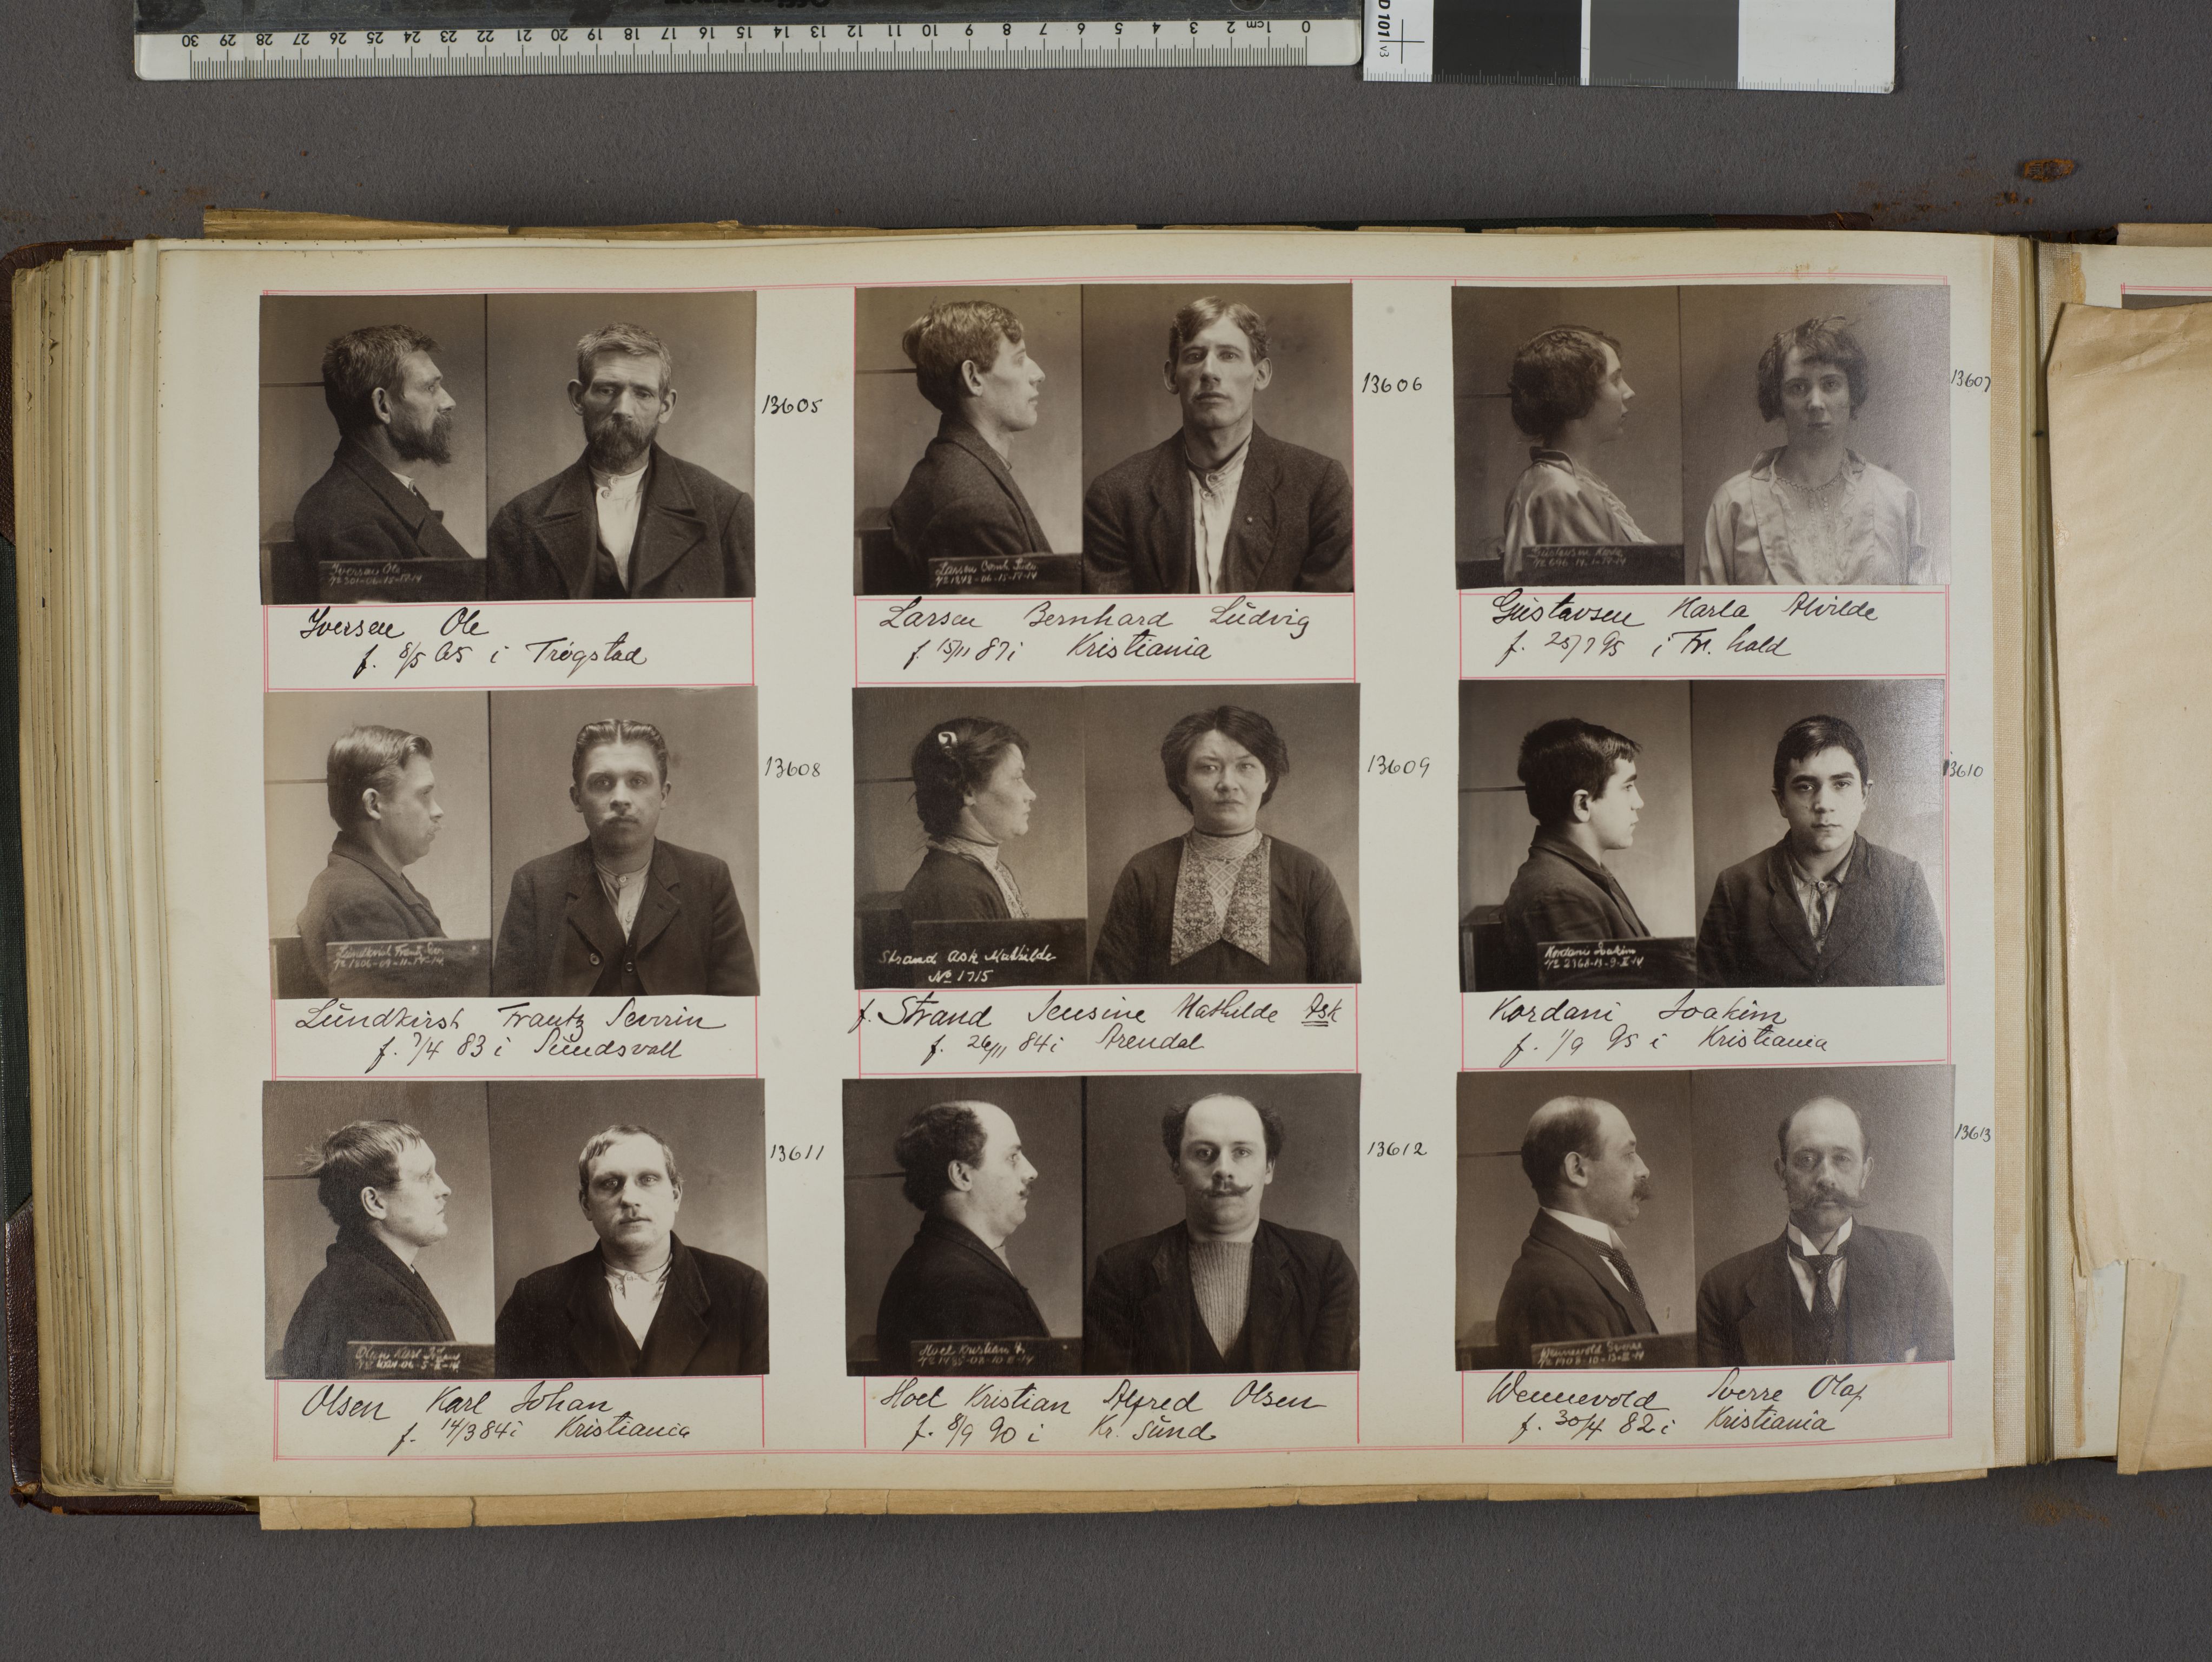 30 29 28 27 26 25 24 23 22 21 20 19 18 17 16 15 14 13 12 11 10 9 8 7 6 5 4 3 2 1cm 0
D 101 v3
13605
Iversen Ole
Iversen Ole
f. 8/5 65 i Trøgstad
13606
Larsen Bernh. Ludv
Larsen Bernhard Ludvig
f. 15/11 87 i Kristiania
13607
Gustavsen Karla
Gustavsen Karla Alvilde
f. 25/7 95 i Fr. hald
13608
Lundkvist Frantz Sev
Lundkvist Frantz Severin
f. 7/4 83 i Sundsvall
13609
Strand Ask Mathilde
No 1715
f. Strand Jensine Mathilde Ask
f. 26/11 84 i Arendal
13610
Kordani Joakim
Kordani Joakim
f. 1/9 95 i Kristiania
13611
Olsen Karl Johan
Olsen Karl Johan
f. 14/3 84 i Kristiania
13612
Hoel Kristian A.
Hoel Kristian Alfred Olsen
f. 8/9 90 i Kr. sund
13613
Wennevold Sverre
Wennevold Sverre Olaf
f. 30/4 82 i Kristiania